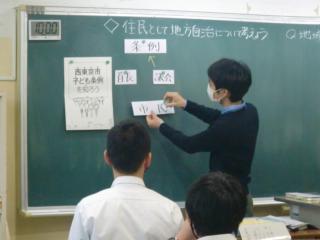 10:00
◇住民として地方自治について考えよう
条例
首長
議会
西東京市
子ども条例
を知ろう